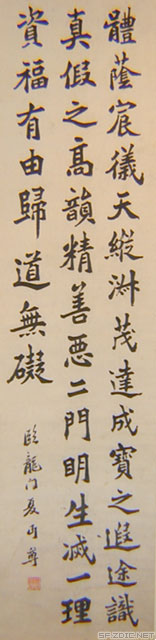 體蔭宸儀天縱淑茂達成寶之遐途識
真假之高韻精善悪二門明生滅一理
資福有由歸道無礙
臨龍门夏丏尊
SF.ZDIC.NET